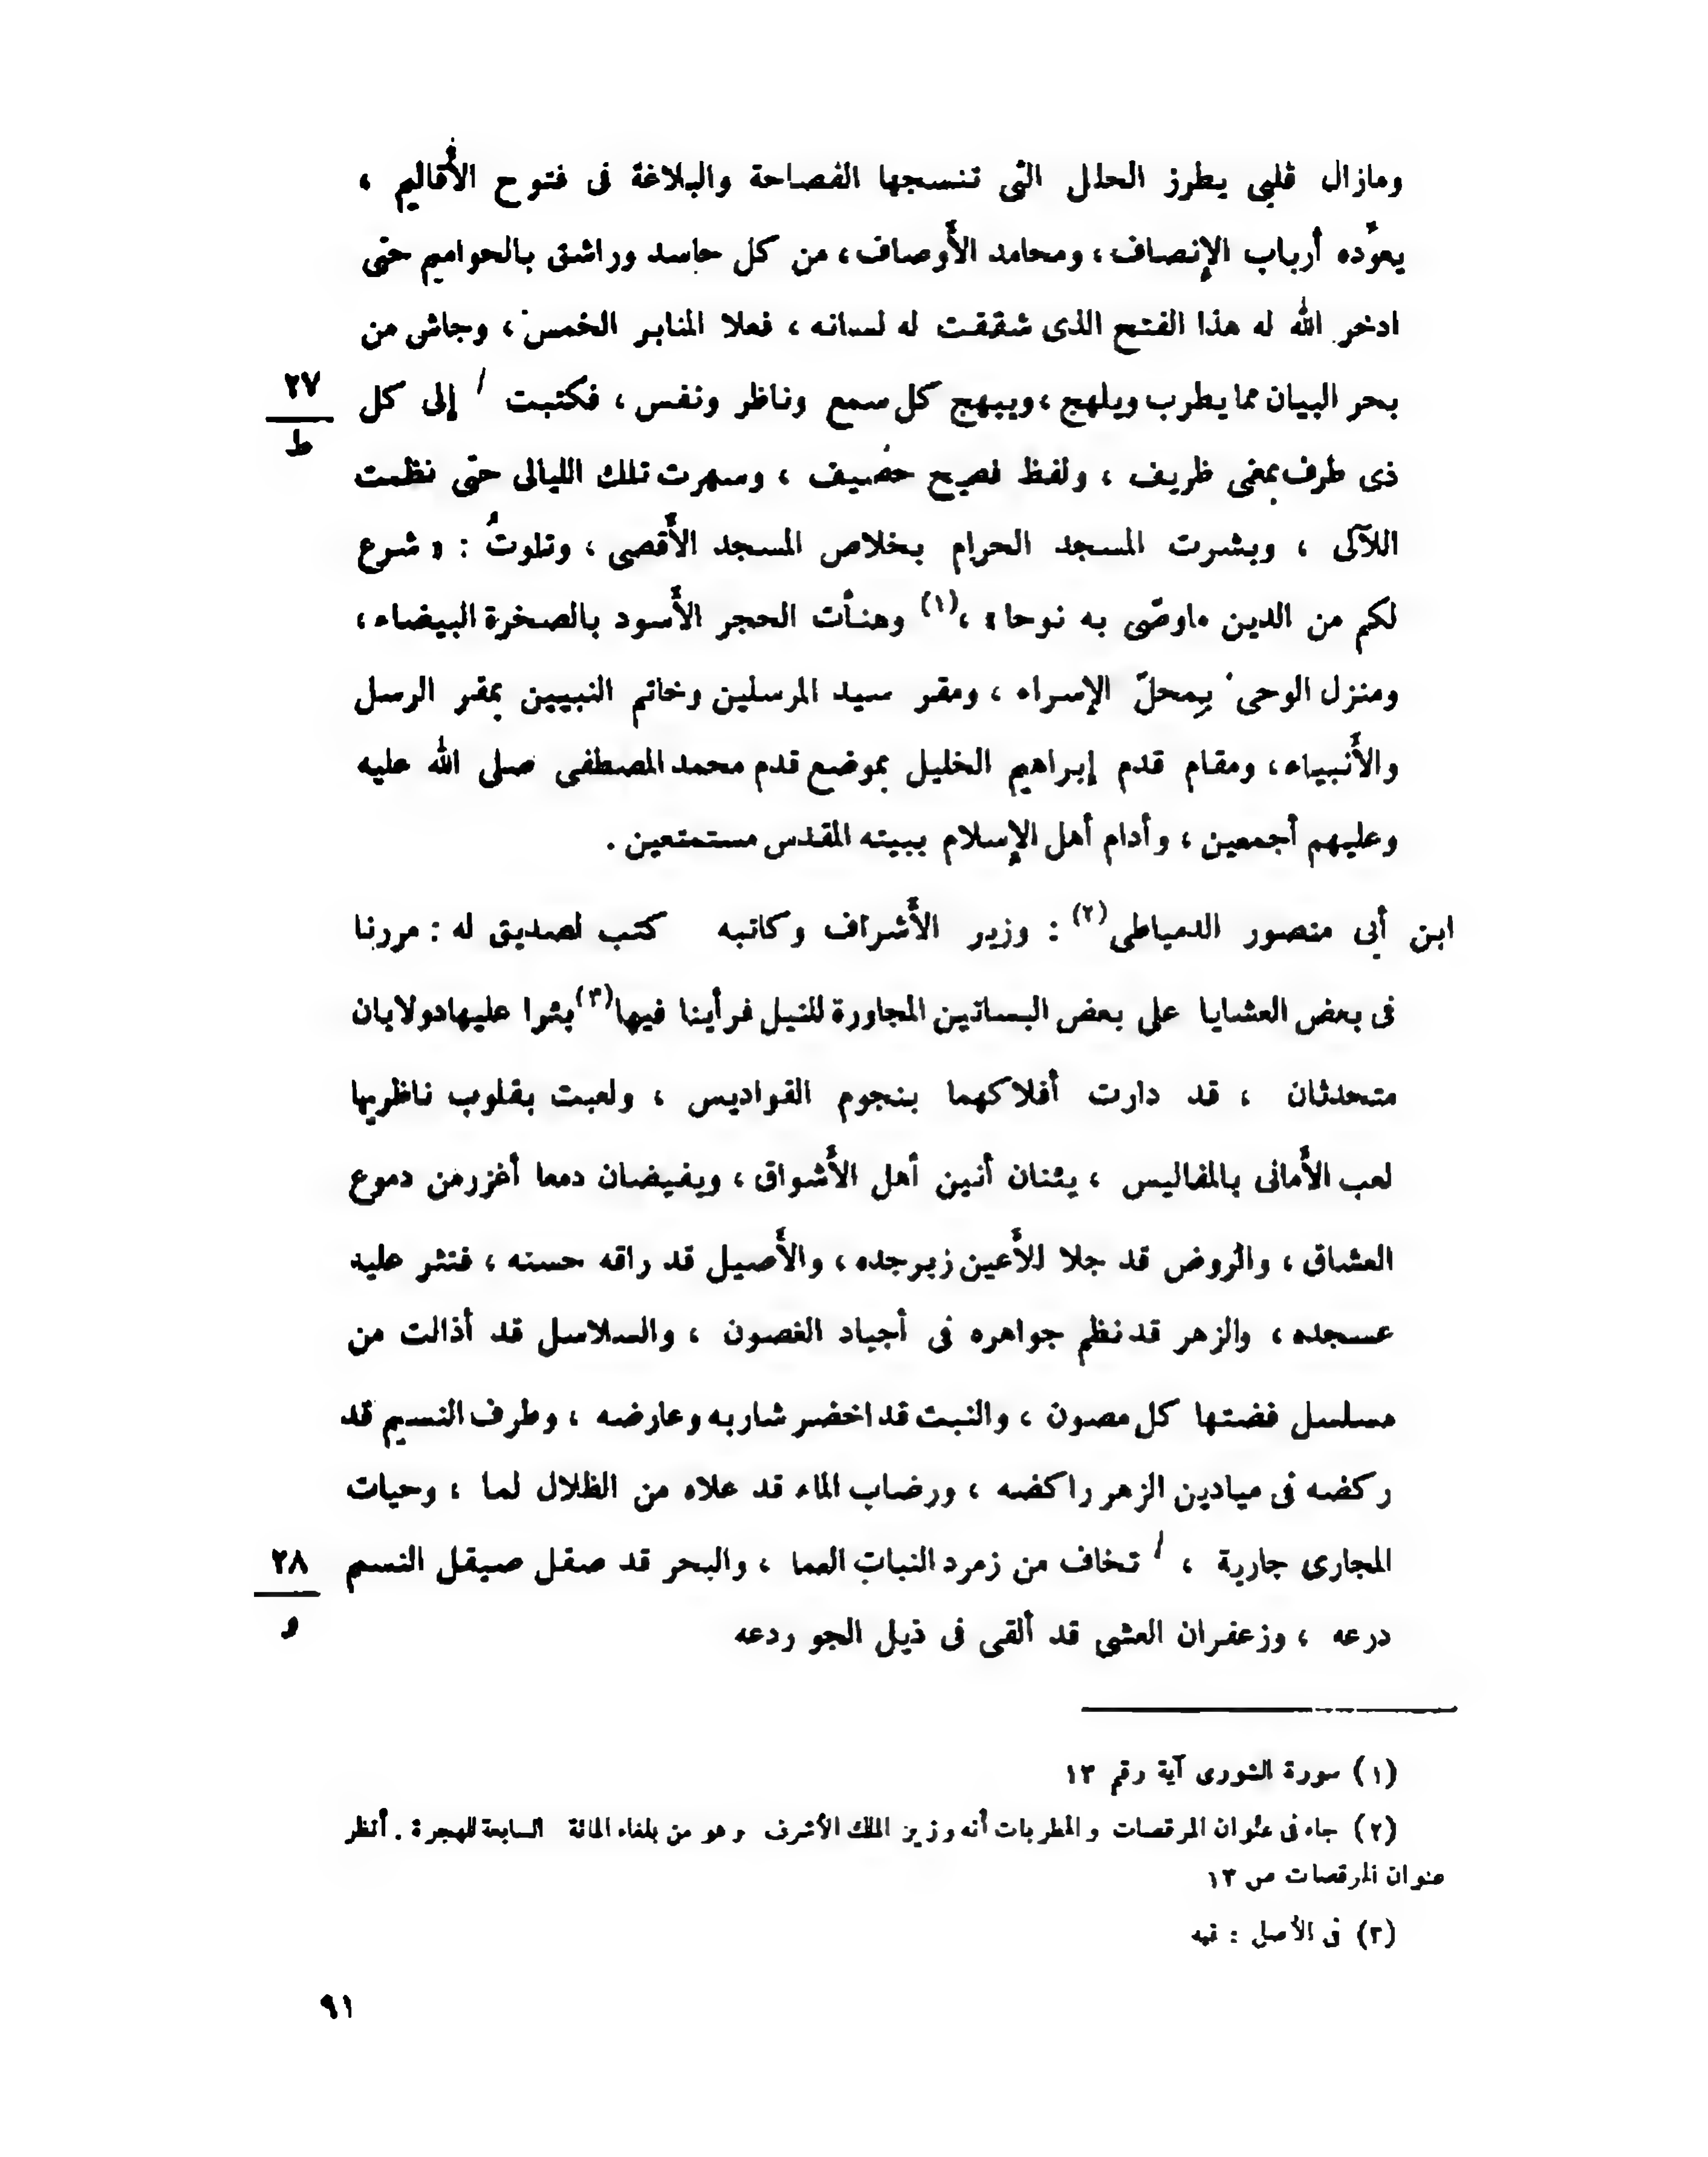 ومازال قلبى يطرز الحلل التى تنسجها الفصاحة والبلاغة فى فتوح الأقاليم ،
يعوّده أرباب الإنصاف ، ومحامد الأوصاف ، من كل حاسد وراشق بالحواميم حتى
ادخر الله له هذا الفتح الذى شققت له لسانه ، فعلا المنابر الخمس ، وجاش من
بحر البيان مما يطرب ويلهج ، ويبهج كل سمع وناظر ونفس ، فكتبت / إلى كل
٢٧
ظ
ذى طرف بمعنى ظريف ، ولفظ فصيح حصيف ، وسهرت تلك الليالى حتى نظمت
اللآلى ، وبشرت المسجد الحرام بخلاص المسجد الأقصى ، وتلوتُ : « شرع
لكم من الدين ماوصّى به نوحا » ،(١) وهنأت الحجر الأسود بالصخرة البيضاء ،
ومنزل الوحى بِمحلّ الإسراء ، ومقر سيد المرسلين وخاتم النبيين بمقر الرسل
والأنبياء ، ومقام قدم إبراهيم الخليل بموضع قدم محمد المصطفى صلى الله عليه
وعليهم أجمعين ، وأدام أهل الإسلام ببيته المقدس مستمتعين .
ابن أبى منصور الدمياطى(٢) : وزير الأشراف وكاتبه كتب لصديق له : مررنا
فى بعض العشايا على بعض البساتين المجاورة للنيل فرأينا فيها(٣) بئرا عليهادولابان
متحدثان ، قد دارت أفلاكهما بنجوم القواديس ، ولعبت بقلوب ناظريها
لعب الأمانى بالمفاليس ، يئنان أنين أهل الأشواق ، ويفيضان دمعا أغزر من دموع
العشاق ، والروض قد جلا للأعين زبرجده ، والأصيل قد راقه حسنه ، فنثر عليه
عسجده ، والزهر قد نظم جواهره فى أجياد الغصون ، والسلاسل قد أذالت من
مسلسل فضتها كل مصون ، والنبت قد اخضر شاربه وعارضه ، وطرف النسيم قد
ركضه فى ميادين الزهر راكضه ، ورضاب الماء قد علاه من الظلال لما ، وحيات
المجارى جارية ، / تخاف من زمرد النبات العما ، والبحر قد صقل صيقل النسم
٢٨
و
درعه ، وزعفران العشى قد ألقى فى ذيل الجو ردعه
(١) سورة الشورى آية رقم ١٣
(٢) جاء فى عنوان المرقصات والمطربات أنه وزير الملك الأشرف وهو من بلغاء المائة السابعة للهجرة . أنظر
عنوان المرقصات ص ١٣
(٣) فى الأصل : فيه
٩١